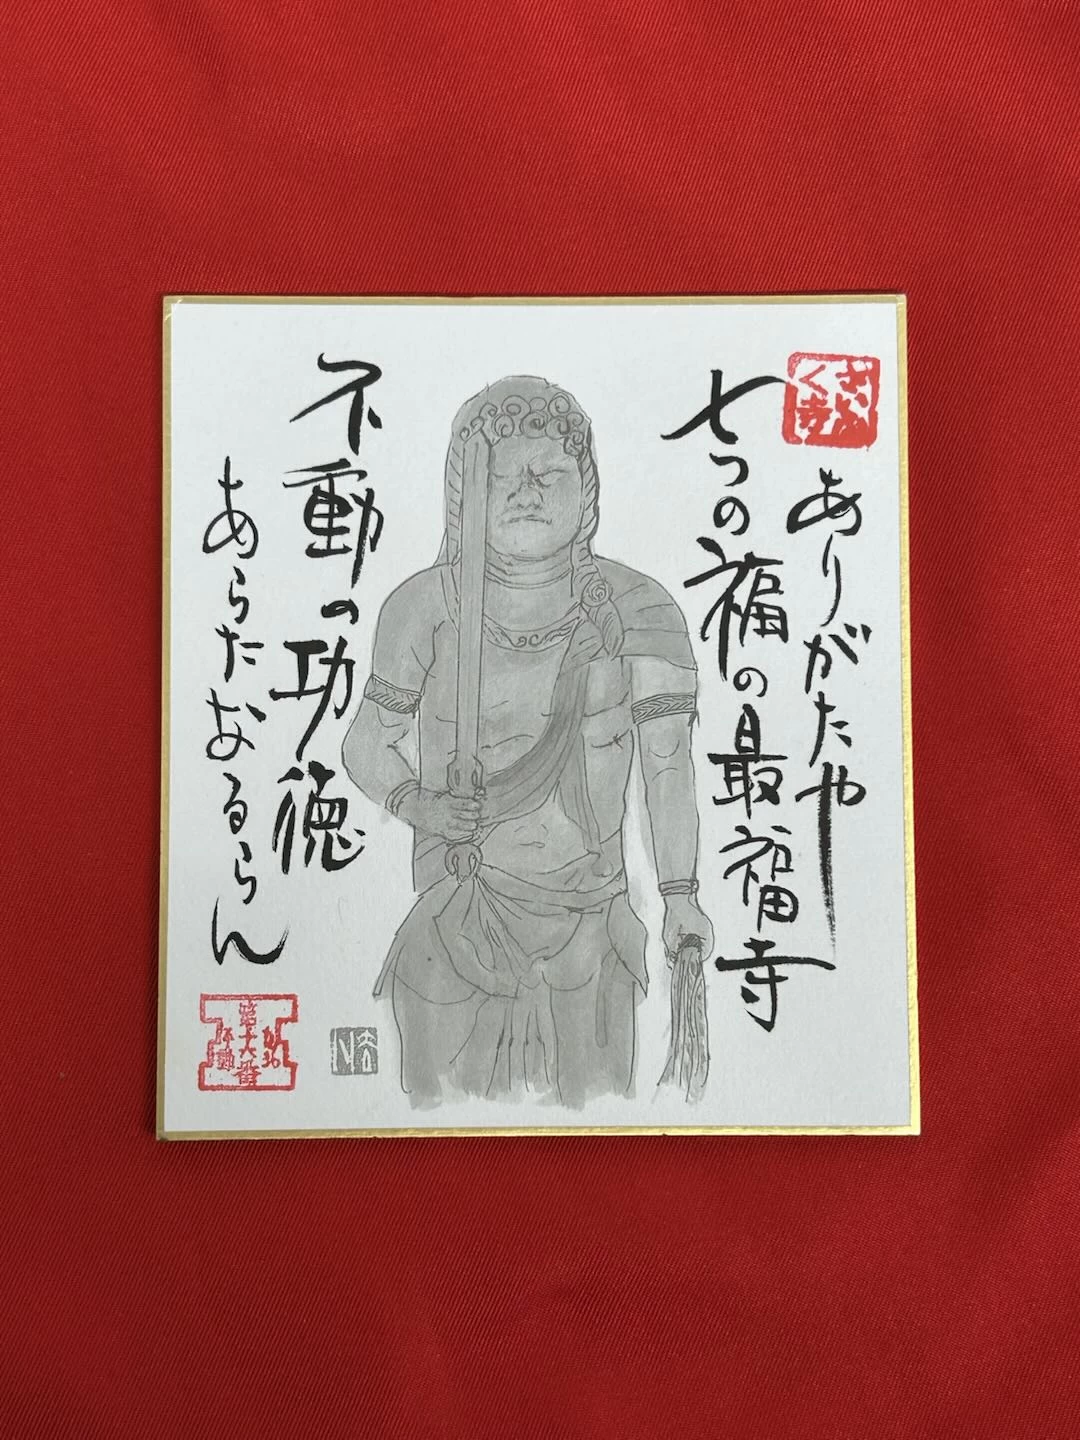 ありがたや
七つの福の最福寺
不動の功徳
あらたなるらん
さいふく寺